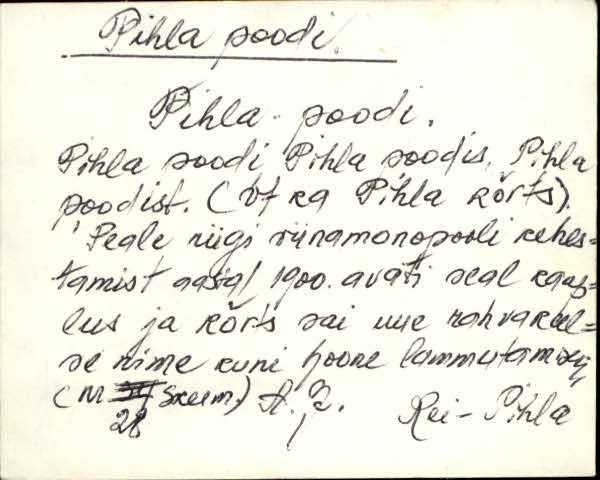 Pihla poodi.
Pihla poodi.
Pihla poodi Pihla poodis, Pihla
poodist. (Vt ka Pihla kõrts).
Peale riigi viinamonopooli kehes=
tamist aastal 1900. avati seal kaup=
lus ja kõrts sai uue rahvakeel=
se nime kuni hoone lammutamiseni
(M 28 Skeem.) A. J. Rei - Pihla